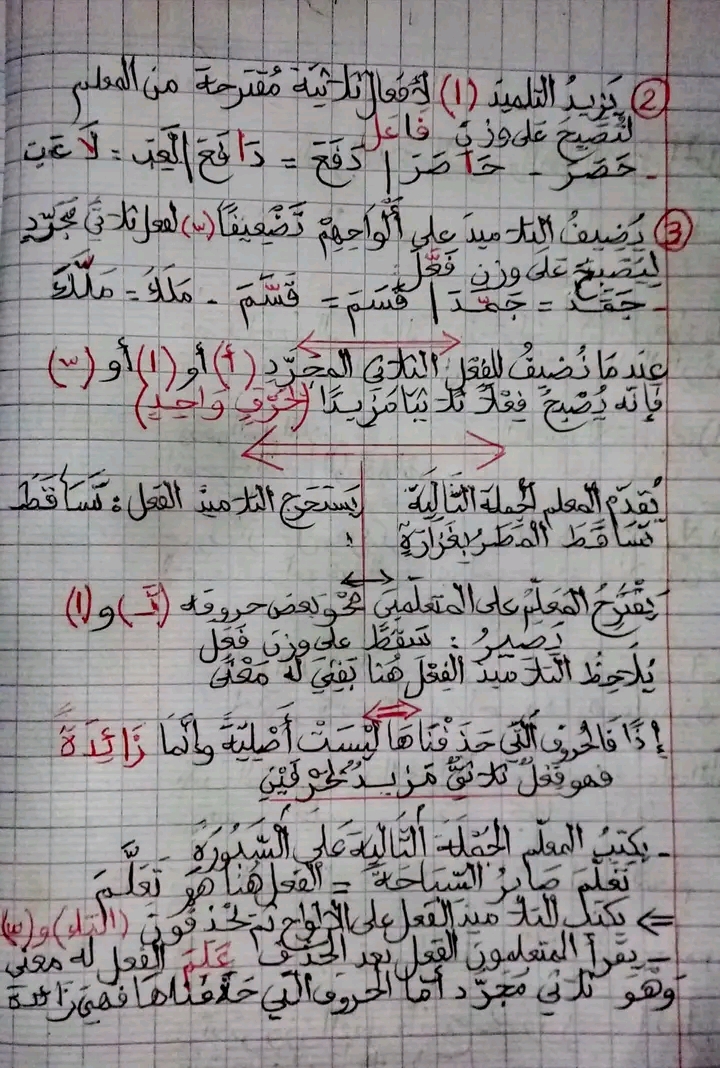 ② يَزِيدُ التلميذ (ا) لأفعال ثلاثية مُقترحة من المعلم
لتُصْبِحَ على وزن فَاعَلَ
- حَصَرَ - حَاصَرَ / دَفَعَ = دَافَعَ / لَعِبَ = لَاعَبَ
③ يُضِيفُ التلاميذ على أَلْوَاحِهِمْ تَضْعِيفًا (ّ) لفعل ثلاثي مُجَرَّدٍ
لِيُصْبِحَ على وزن فَعَّلَ
- جَمَدَ = جَمَّدَ / قَسَمَ = قَسَّمَ - مَلَكَ = مَلَّكَ
عندما نُضِيفُ للفعل الثلاثي المجرّد (أ) أو (ا) أو (ّ)
فإنه يُصْبِحُ فِعْلًا ثلاثيا مَزِيدًا (بحَرْفٍ وَاحِدٍ)
يُقدّم المعلم الجملة التَّالِيَة
تَسَاقَطَ المَطَرُ بِغَزَارَةٍ
يَستخرج التلاميذ الفعل : تَسَاقَطَ
يَقْتَرِحُ المُعَلِّمُ على المتعلّمين مَحْوَ بعض حروفه (تَـ) و (ا)
يَصِيرُ : سَقَطَ على وزن فَعَلَ
يُلَاحِظُ التلاميذ الفِعْلَ هُنا بَقِيَ لَهُ مَعْنًى
إذًا فالحروف الَّتِي حَذَفْنَاهَا لَيْسَتْ أَصْلِيَّةً وإنَّمَا زَائِدَةً
فهو فعلٌ ثلاثيٌّ مَزيدٌ بحَرْفَيْنِ
- يكتبُ المعلّم الجُمْلَةَ التَّالِيَةَ عَلَى السَّبُّورَةِ
تَعَلَّمَ صَابِرُ السِّبَاحَةَ = الفعل هُنا هو تَعَلَّمَ
⇐ يكتب التلاميذ الفعل على الألواح ثم يحذفون (التاء) و (ّ)
- يقرأ المتعلمون الفعل بعد الحذف عَلِمَ الفعل له معنى
وَهُوَ ثلاثي مُجَرَّد أمّا الحروف الَّتي حَذَفْنَاها فهي زَائدة